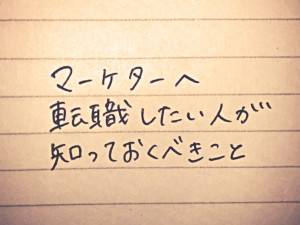 マーケターへ
転職したい人が
知っておくべきこと